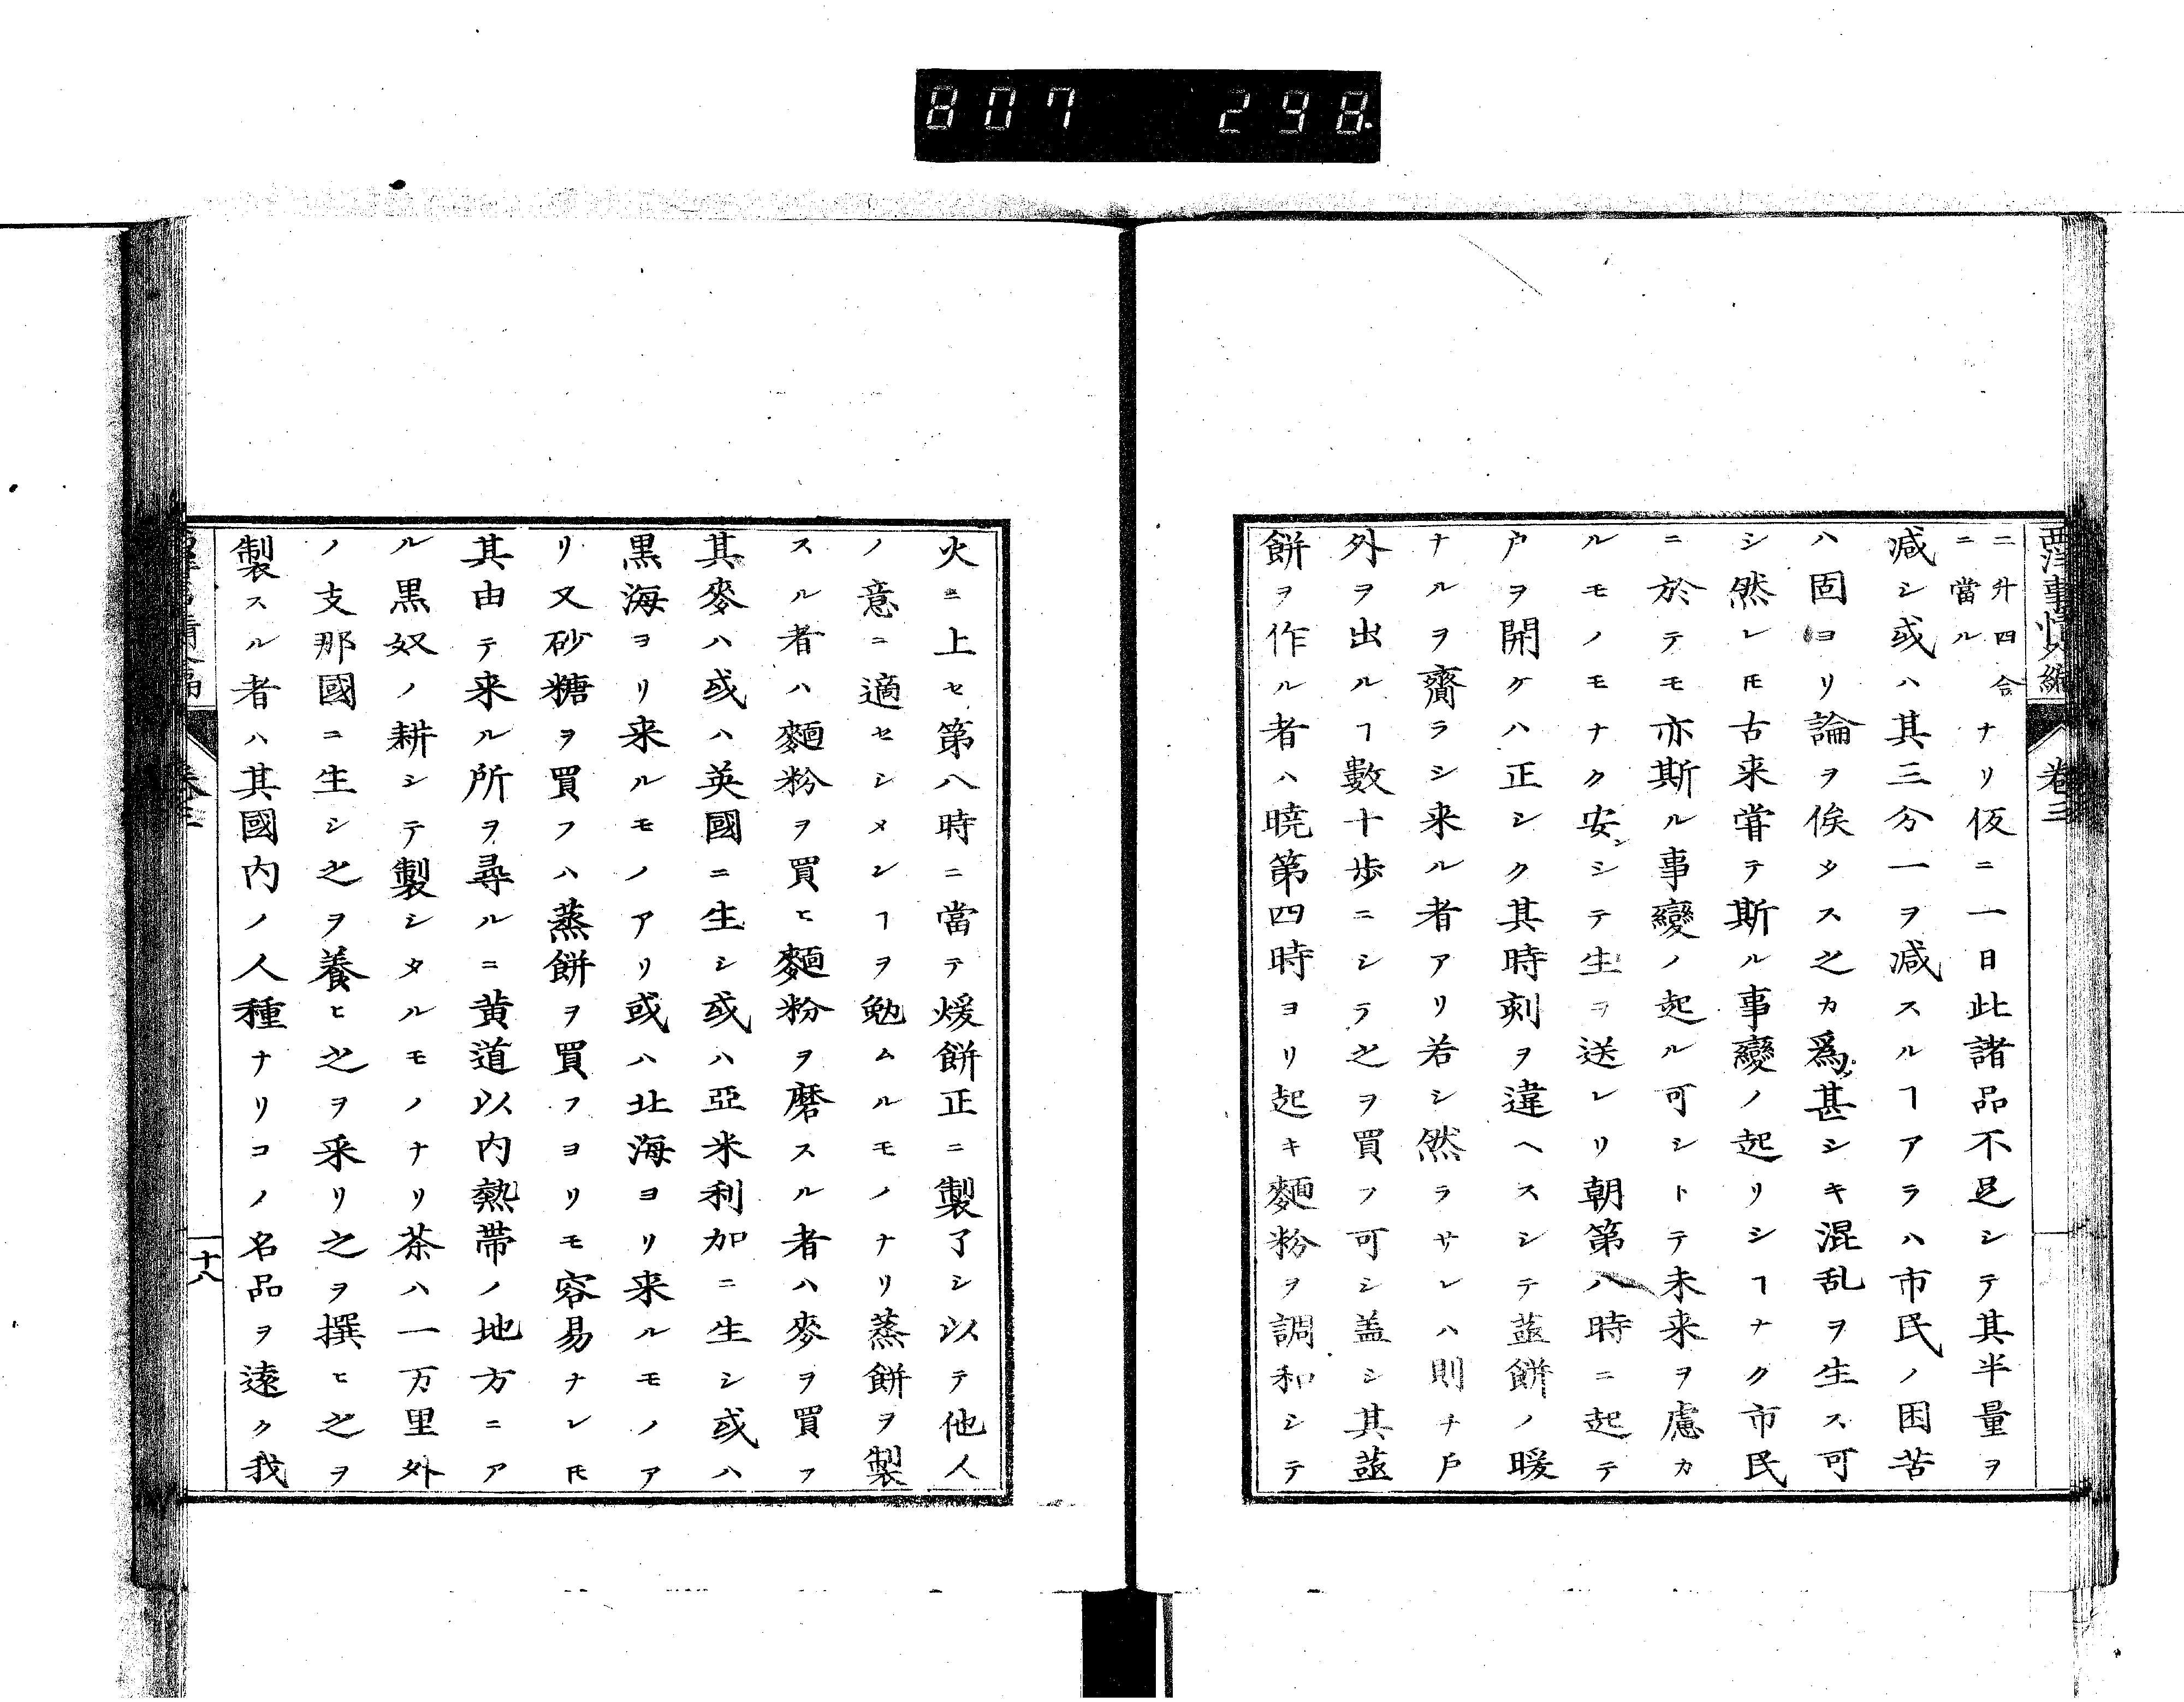 807 298
西洋事情外編 卷三
二升四合
ニ當ル
ナリ仮ニ一日此諸品不足シテ其半量ヲ
減シ或ハ其三分一ヲ減スルヿアラハ市民ノ困苦
ハ固ヨリ論ヲ俟タス之カ爲メ甚シキ混乱ヲ生ス可
シ然レ𪜈古来甞テ斯ル事變ノ起リシヿナク市民
ニ於テモ亦斯ル事變ノ起ル可シトテ未来ヲ慮カ
ルモノモナク安ンシテ生ヲ送レリ朝第八時ニ起テ
戸ヲ開ケハ正シク其時刻ヲ違ヘスシテ蒸餅ノ暖
ナルヲ齎ラシ来ル者アリ若シ然ラサレハ則チ戸
外ヲ出ルヿ數十歩ニシテ之ヲ買フ可シ盖シ其蒸
餅ヲ作ル者ハ暁第四時ヨリ起キ麺粉ヲ調和シテ
火ニ上セ第八時ニ當テ煖餅正ニ製了シ以テ他人
ノ意ニ適セシメンヿヲ勉ムルモノナリ蒸餅ヲ製
スル者ハ麺粉ヲ買ヒ麺粉ヲ磨スル者ハ麥ヲ買フ
其麥ハ或ハ英國ニ生シ或ハ亞米利加ニ生シ或ハ
黒海ヨリ来ルモノアリ或ハ北海ヨリ来ルモノア
リ又砂糖ヲ買フハ蒸餅ヲ買フヨリモ容易ナレ𪜈
其由テ来ル所ヲ尋ルニ黄道以内熱帶ノ地方ニア
ル黒奴ノ耕シテ製シタルモノナリ茶ハ一万里外
ノ支那國ニ生シ之ヲ養ヒ之ヲ采リ之ヲ撰ヒ之ヲ
製スル者ハ其國内ノ人種ナリコノ名品ヲ遠ク我
十八